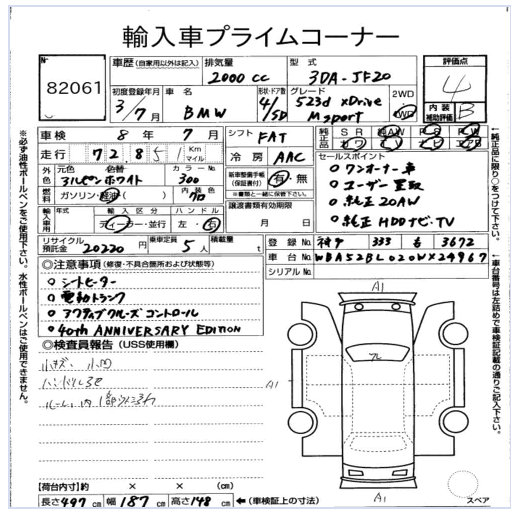 輸入車プライムコーナー
No 82061
車歴 (自家用以外は記入)
排気量 2000 cc
型式 3DA-JF20
評価点 4
内装補助評価 B
初度登録年月 3/7月
車名 BMW
形状・ドア数 4/5D
グレード 523d xDrive Msport
2WD
4WD
車検 8年 7月
シフト FAT
純正品
SR
AW
PS
PW
カワ
ナビ
エアB
走行 72851 Km マイル
冷房 AAC
セールスポイント
ワンオーナー車
ユーザー買取
純正20AW
純正HDDナビ・TV
外色 元色 色替 アルピンホワイト
カラーNo 300
燃料 ガソリン・軽油( )
内装色 クロ
新車整備手帳(保証書付) 有・無
※書類と一緒に保管下さい。
輸入車用 年式 輸入区分 ディーラー・並行
ハンドル 左・右
譲渡書類有効期限
月 日
リサイクル預託金 20220円
乗車定員 5人
積載量 t
登録No 神戸 333 も 3672
車台No WBA52BL020WX24967
シリアルNo
◎注意事項 (修復・不具合箇所および状態等)
シートヒーター
電動トランク
アクティブクルーズコントロール
40th ANNIVERSARY EDITION
◎検査員報告 (USS使用欄)
小キズ、小凹
ハンドルスレ
A1
A1
A1
フレ
スペア
【荷台内寸】約 × × (cm)
長さ497cm 幅187cm 高さ148cm ←(車検証上の寸法)
※必ず油性ボールペンをご使用下さい。水性ボールペンはご使用できません。
↑純正品に限り○をつけて下さい。
↑車台番号は左詰めで車検証記載の通りご記入下さい。